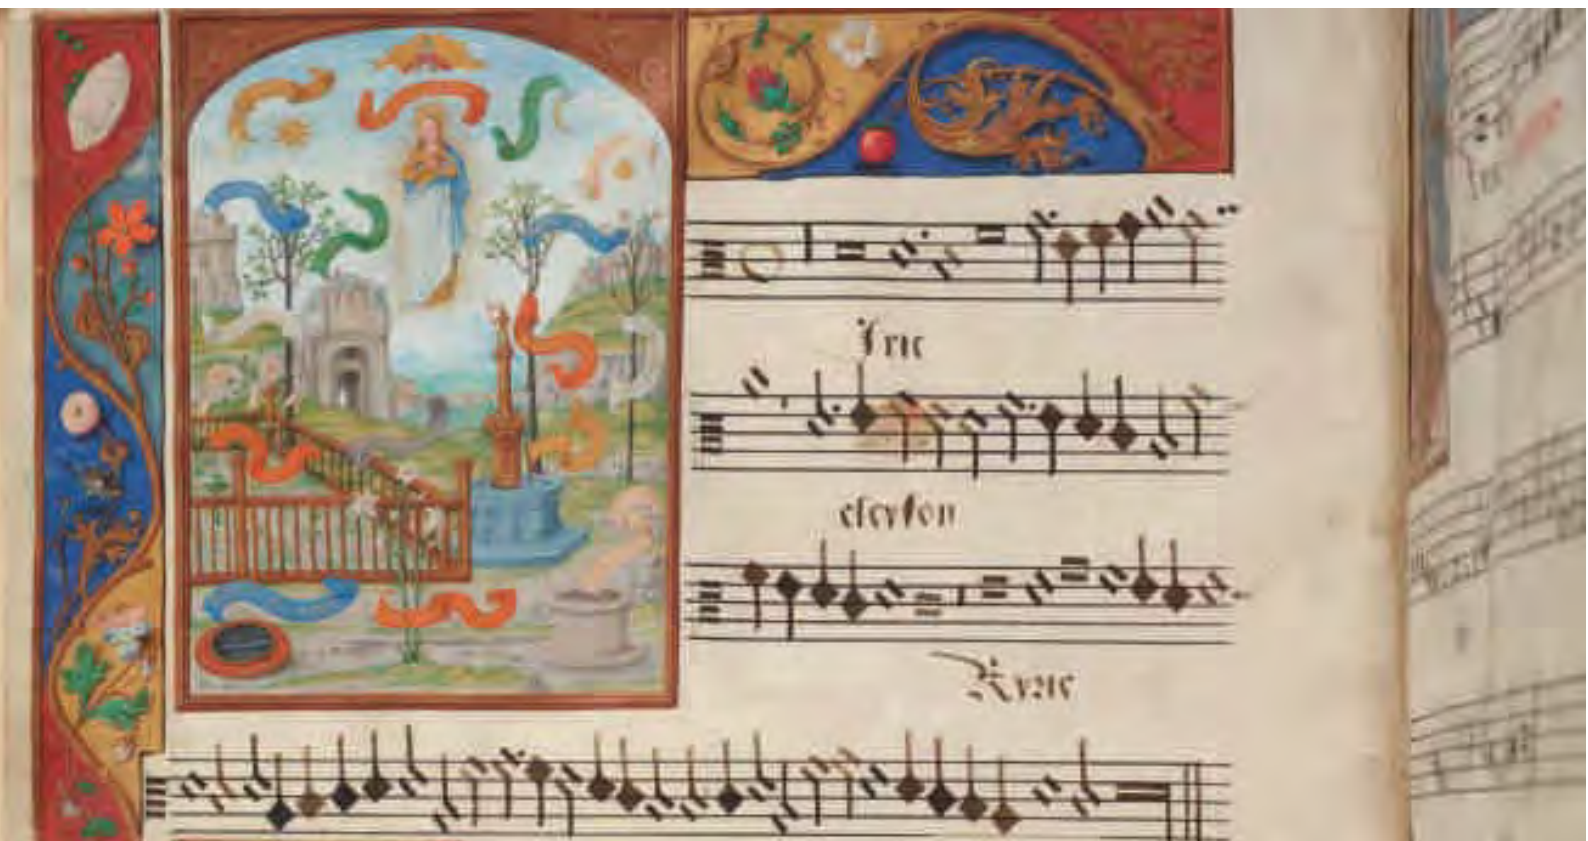 kyrie
eleyson
Kyrie